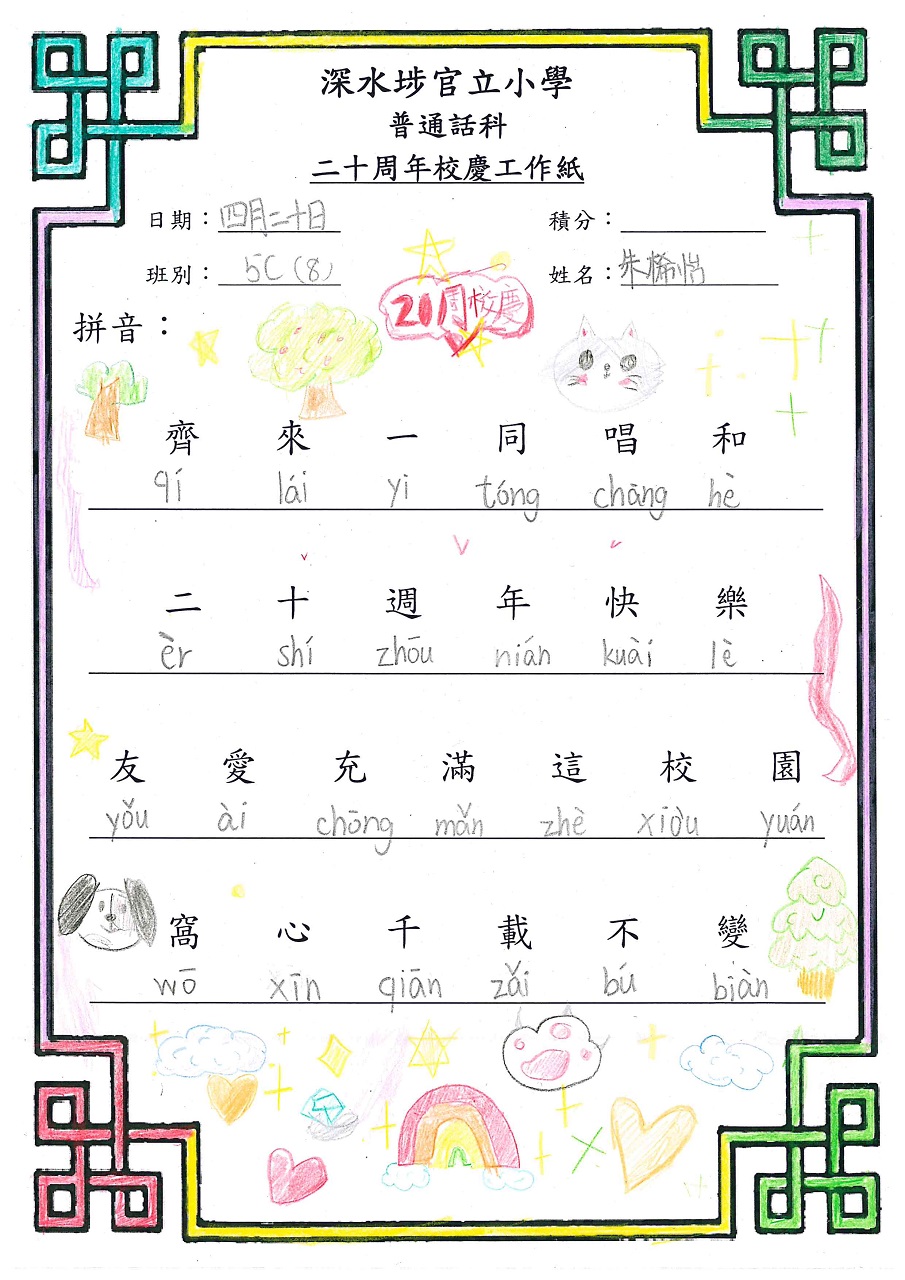 深水埗官立小學
普通話科
二十周年校慶工作紙
日期：四月二十日 積分：
班別：5C(8) 姓名：朱悕怡
20周校慶
拼音：
齊 來 一 同 唱 和
qí lái yi tóng chāng hè
二 十 週 年 快 樂
èr shí zhōu nián kuài lè
友 愛 充 滿 這 校 園
yǒu ài chōng mǎn zhè xiòu yuán
窩 心 千 載 不 變
wō xīn qiān zǎi bú biàn